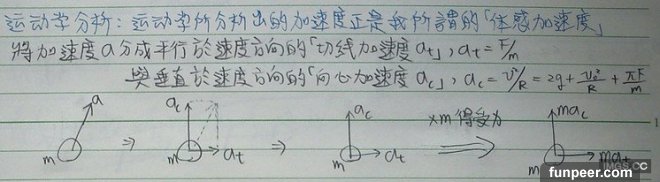 运动学分析:运动学所分析出的加速度正是我所謂的「体感加速度」
將加速度a分成平行於速度方向的「切线加速度 at」, at = F/m
與垂直於速度方向的「向心加速度 ac」, ac = v²/R = 2g + v₀²/R + πF/m
a ac ac ×m 得受力 mac
m ⇒ m at ⇒ m at m mat
funpeer.com